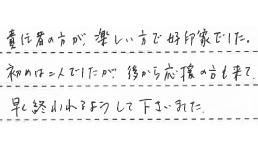 責任者の方が、楽しい方で好印象でした。
初めは二人でしたが、後から応援の方も来て、
早く終われるようして下さいました。